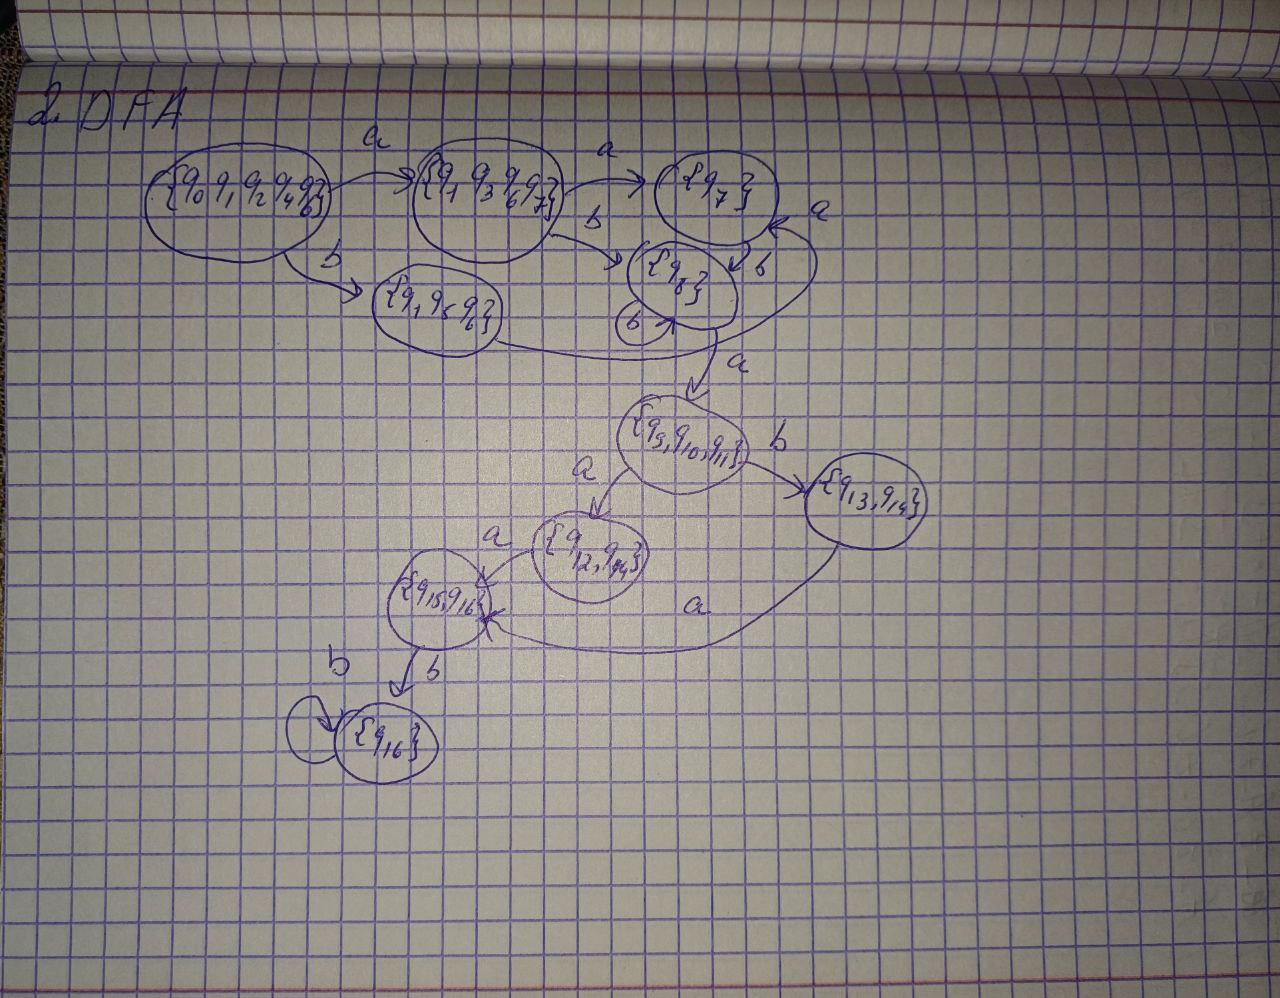 2. DFA
a
a
{q0 q1 q2 q4 q6}
{q1 q3 q6 q7}
{q7}
a
b
b
b
{q8}
{q1 q5 q6}
b
a
{q9, q10, q11}
b
a
{q13, q14}
a
{q12, q14}
{q15, q16}
a
b
b
{q16}